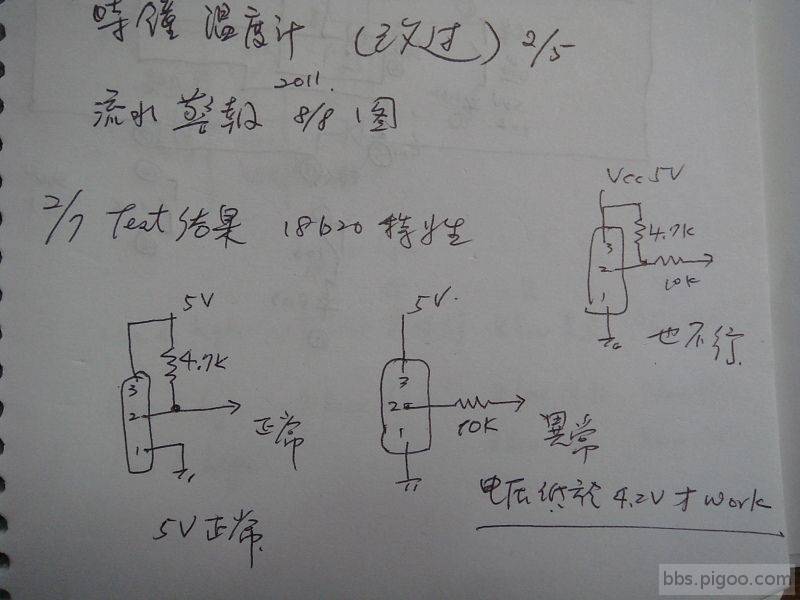 時鐘 温度计 (已改过) 2/5
流水 警報 2011. 8/8 1图
2/7 Test 结果 18b20 特性
Vcc 5V
3
4.7K
2
10K
1
也不行.
5V
4.7K
3
2
1
正常
5V正常.
5V.
3
2
1
10K
異常
电压低於 4.2V 才 work
bbs.pigoo.com